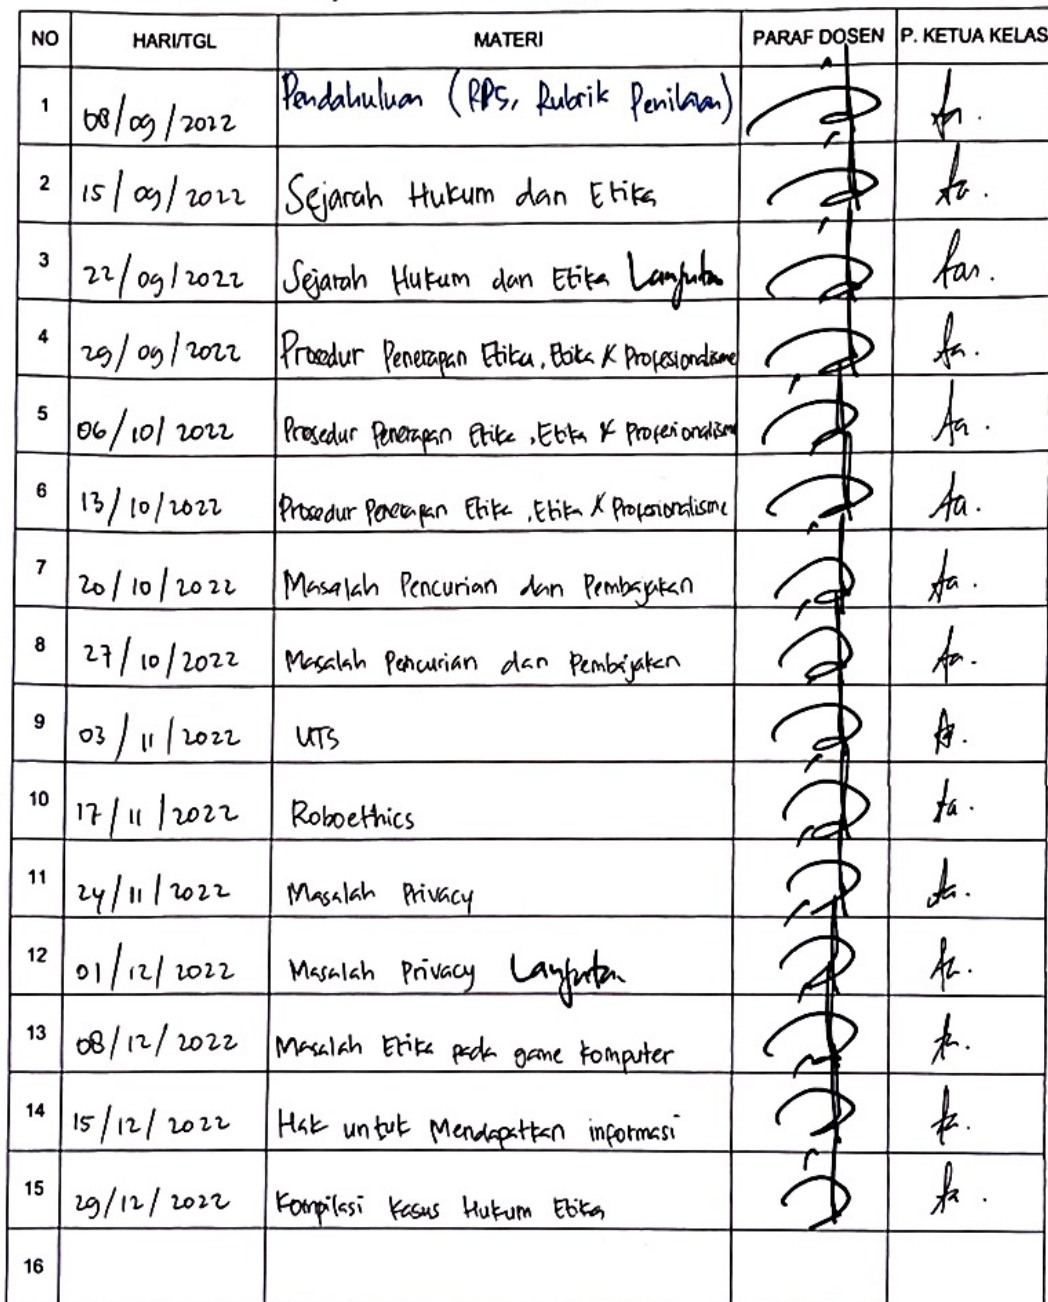 NO HARI/TGL MATERI PARAF DOSEN P. KETUA KELAS
1 08/09/2022 Pendahuluan (RPS, Rubrik Penilaian)
2 15/09/2022 Sejarah Hukum dan Etika
3 22/09/2022 Sejarah Hukum dan Etika Lanjutan
4 29/09/2022 Prosedur Penerapan Etika, Etika & Profesionalisme
5 06/10/2022 Prosedur Penerapan Etika, Etika & Profesionalisme
6 13/10/2022 Prosedur Penerapan Etika, Etika & Profesionalisme
7 20/10/2022 Masalah Pencurian dan Pembajakan
8 27/10/2022 Masalah Pencurian dan Pembajakan
9 03/11/2022 UTS
10 17/11/2022 Roboethics
11 24/11/2022 Masalah Privacy
12 01/12/2022 Masalah Privacy Lanjutan
13 08/12/2022 Masalah Etika pada game komputer
14 15/12/2022 Hak untuk Mendapatkan informasi
15 29/12/2022 Kompilasi Kasus Hukum Etika
16